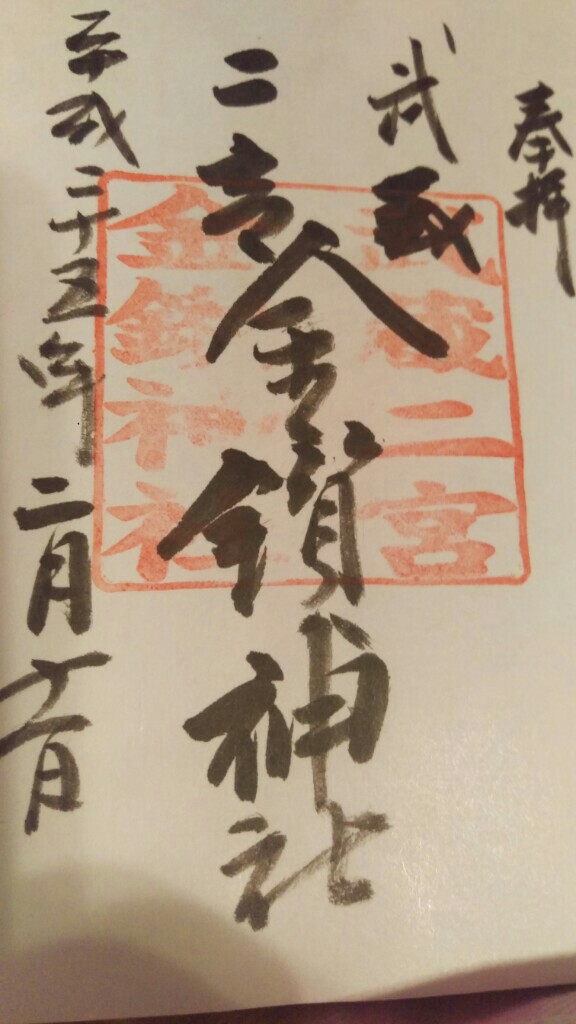 奉拝
武蔵
二宮金鑚神社
平成二十五年二月十一日
武蔵二宮
金鑚神社